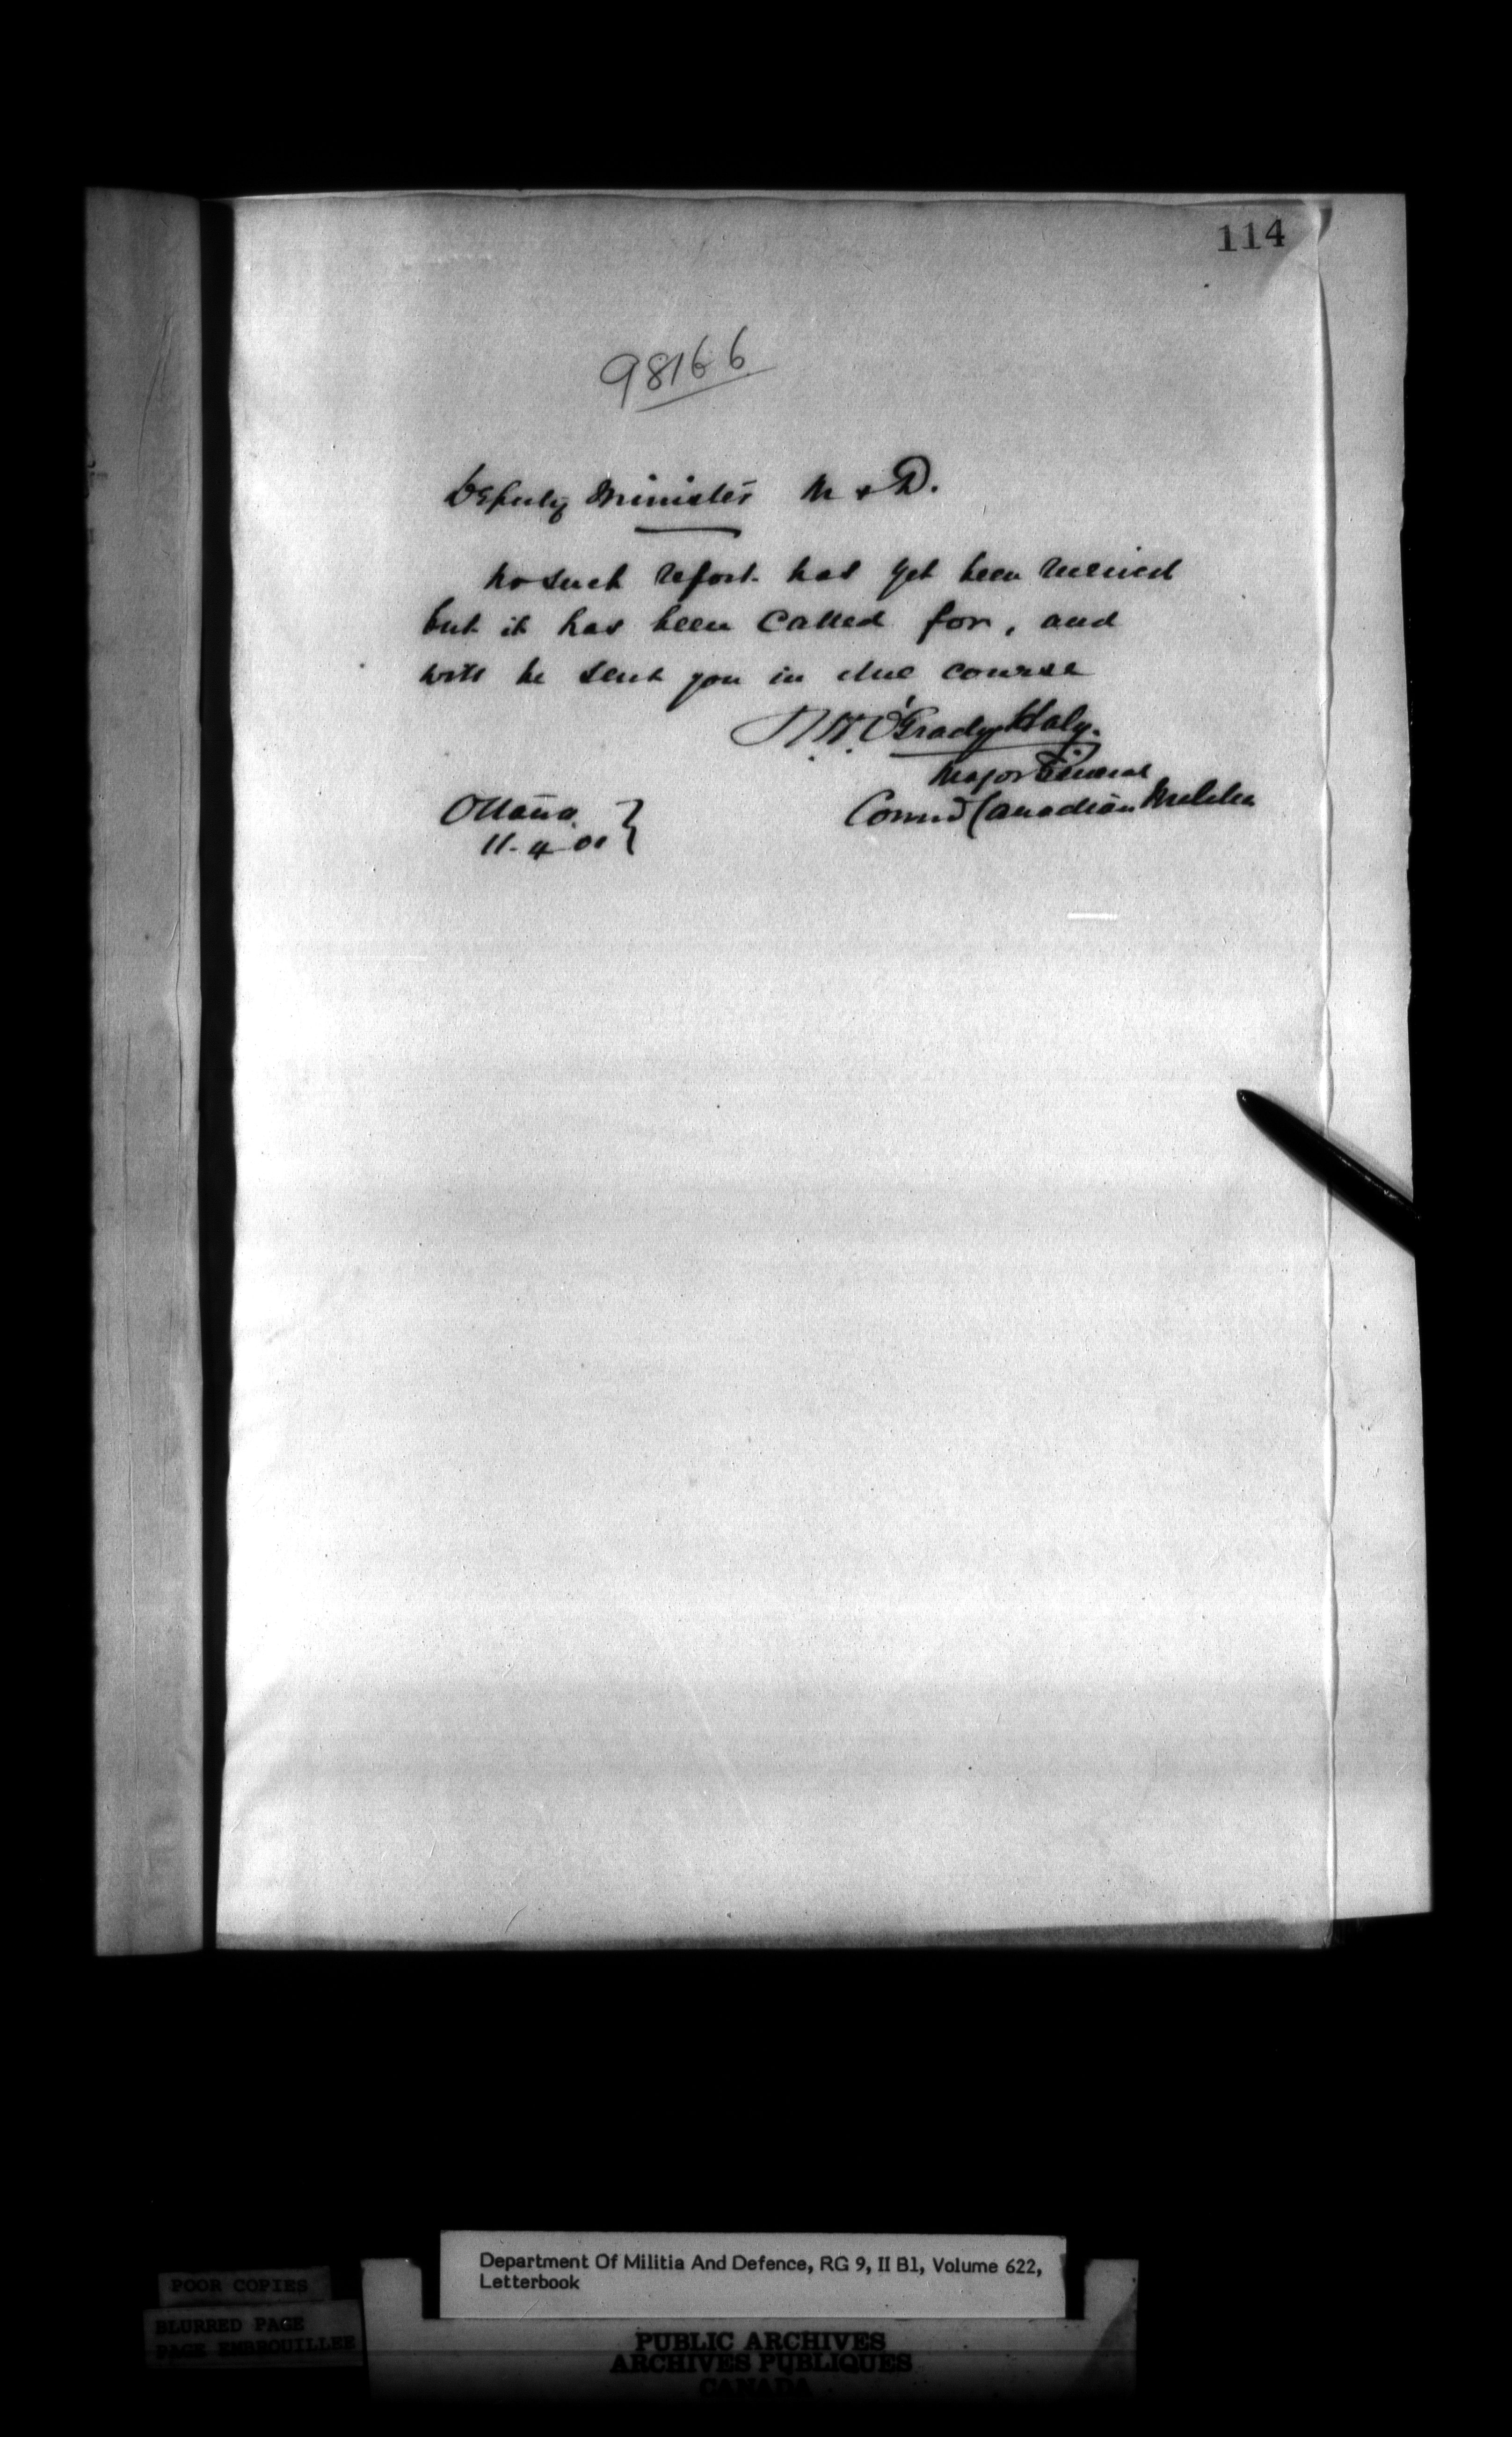 114
98166
Deputy Minister M & D.
No such report has yet been received
but it has been called for, and
will be sent you in due course
R. H. O'Grady Haly.
Major General
Comd Canadian Militia
Ottawa
11-4-01
Department Of Militia And Defence, RG 9, II B1, Volume 622,
Letterbook
POOR COPIES
BLURRED PAGE
PAGE EMBROUILLEE
PUBLIC ARCHIVES
ARCHIVES PUBLIQUES
CANADA